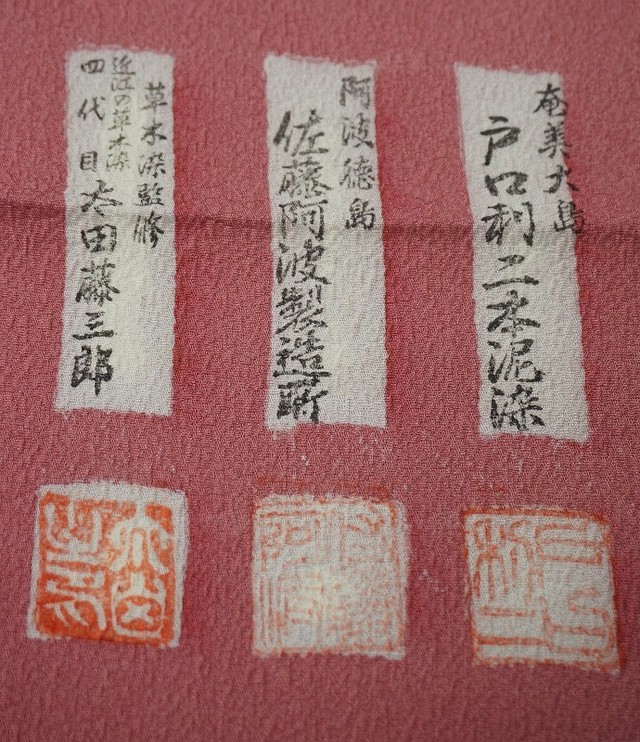 奄美大島
戸口利二本泥染
阿波徳島
佐藤阿波製造所
草木染監修
近江の草木染
四代目太田藤三郎